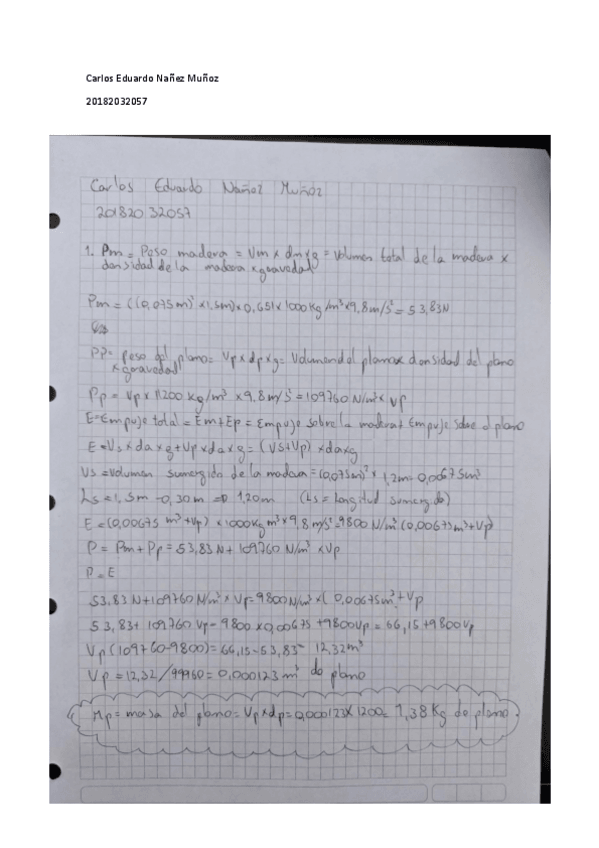 Carlos Eduardo Nañez Muñoz
20182032057
Carlos Eduardo Nañez Muñoz
20182032057
1. Pm = Peso madera = Vm x dm x g = Volumen total de la madera x
densidad de la madera x gravedad
Pm = ((0,075m)² x 1,5m) x 0,651 x 1000 Kg/m³ x 9,8 m/s² = 53,83N
PP = peso del plomo = Vp x dp x g = Volumen del plomo x densidad del plomo
x gravedad
Pp = Vp x 11200 kg/m³ x 9,8 m/s² = 109760 N/m³ x Vp
E = Empuje total = Em + Ep = Empuje sobre la madera + Empuje sobre el plomo
E = Vs x da x g + Vp x da x g = (Vs + Vp) x da x g
Vs = Volumen sumergido de la madera = (0,075m)² x 1,2m = 0,00675m³
Ls = 1,5m - 0,30m => 1,20m (Ls = longitud sumergida)
E = (0,00675 m³ + Vp) x 1000Kg/m³ x 9,8 m/s² = 9800 N/m³ (0,00675m³ + Vp)
P = Pm + Pp = 53,83N + 109760 N/m³ x Vp
P = E
53,83N + 109760 N/m³ x Vp = 9800 N/m³ x (0,00675m³ + Vp
53,83 + 109760 Vp = 9800 x 0,00675 + 9800 Vp = 66,15 + 9800 Vp
Vp (109760 - 9800) = 66,15 - 53,83 = 12,32m³
Vp = 12,32 / 99960 = 0,000123 m³ de plomo
Mp = masa del plomo = Vp x dp = 0,000123 x 11200 = 1,38 Kg de plomo